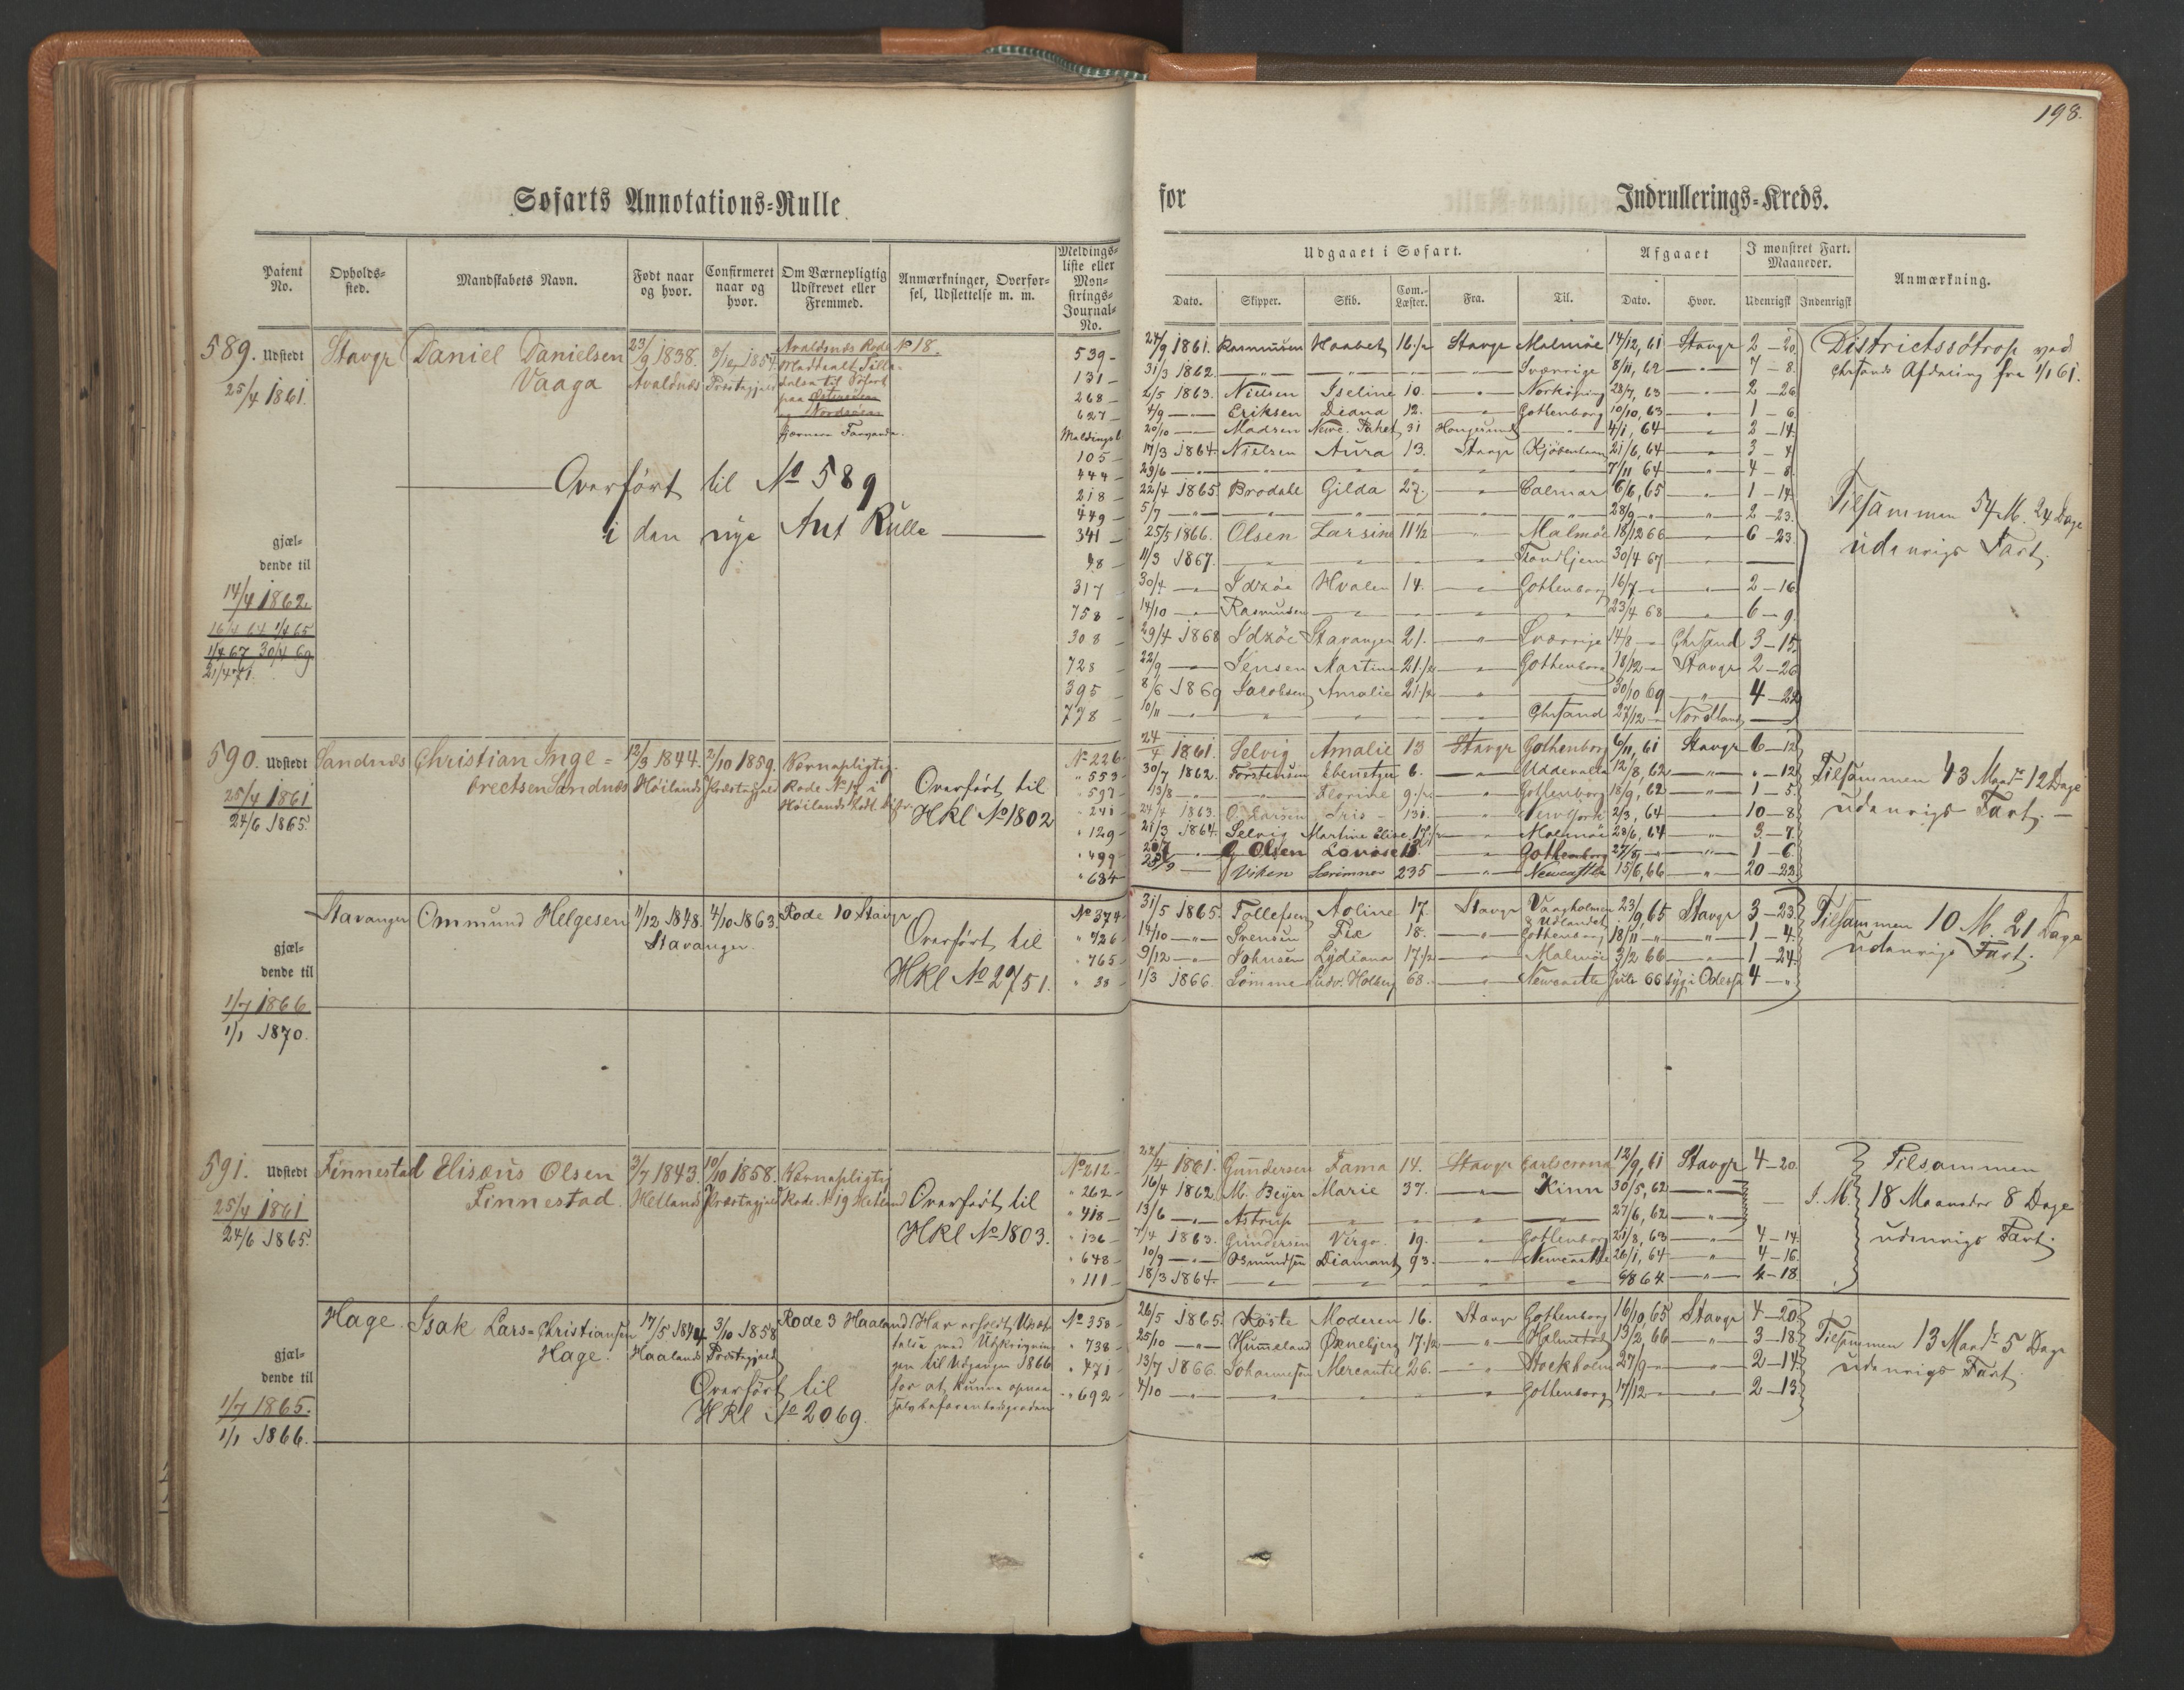 198.
Søfarts Annotations-Rulle
for Indrullerings-Kreds.
Patent No. Opholds-sted. Mandskabets Navn. Født naar og hvor. Confirmeret naar og hvor. Om Værnepligtig Udskrevet eller Fremmed. Anmærkninger, Overførsel, Udslettelse m. m. Meldings-liste eller Mønstrings-Journal-No.
Udgaaet i Søfart. Afgaaet I mønstret Fart. Maaneder. Anmærkning.
Dato. Skipper. Skib. Com.-Læster. Fra. Til. Dato. Hvor. Udenrigsk Indenrigsk
589. Udstedt Stavgr Daniel Danielsen 23/9 1838. 1854. Avaldsnæs Rode No 18.
25/4 1861. Vaaga Avaldnæs Præstegjæld
Overført til No 589
i den nye Ant Rulle
gjæl-
dende til
14/4 1862.
16/4 64 1/4 65
1/4 67 30/4 69
21/4 71.
539 24/9 1861. Rasmussen Haabet 16 1/2 Stavgr Malmöe 14/12, 61 Stavgr 2 - 20
131 31/3 1862. Sverrige 8/11, 62 7 - 8
268 2/5 1863. Nielsen Iseline 10. Norköping 28/7, 63 2 - 26
627 4/9 Eriksen Diana 12. Gottenborg 10/10, 63 1 - 6
Meldingsl 20/10 Madsen 31 4/1, 64 2 - 14
105 17/3 1864. Nielsen Aura 13. Stavgr Kjöbenhavn 21/6, 64 3 - 4
444 29/6 7/11 64 4 - 8
218 22/4 1865 Brodahl Gilda 27. Calmar 6/6, 65 1 - 14
449 5/7 28/9 2 - 23
341 25/5 1866. Olsen Larsine 11 1/2 Malmöe 18/12 66 6 - 23
98 11/3 1867. Trondhjem 30/4 67
317 30/4 Idzöe Hvalen 14. Gottenborg 16/7 2 - 16
758 14/10 Rasmussen 23/4 68 6 - 9
308 29/4 1868 Idzöe Stavanger 21. Sverrige 14/8 Chrsand 3 - 15
728 22/9 Jensen Martine 21 1/2 Gothenborg 18/12 Stavgr 2 - 26
395 8/6 1869 Jacobsen Amalie 21 1/2 30/10 69 4 - 22
778 10/11 Chrsand 27/12 Nordland
Districtssötrop ved
Chrsands Afdeling fra 1/1 61.
Tilsammen 54 M. 24 Dage
udenrigs Fart.
590. Udstedt Sandnæs Christian Inge= 12/3 1844. 2/10 1859. Værnepligtig.
25/4 1861 brectsen Sandnæs Höilands Præstegjæld Rode No 14 i
24/6 1865.
Overført til
HRl No 1802
No 226 24/4 1861 Selvig Amalie 13 Stavgr Gothenborg 6/11, 61 Stavgr 6 - 12
553 30/7 1862. Torstensen Ebenetzer 6. Uddevalla 12/8, 62 - 12
597 13/8 Florine 9 1/2 Gothenborg 18/9, 62 1 - 5
241 24/4 1863. O. Larsen Iris 131. Newyork 2/3, 64 10 - 8
129 21/3 1864. Selvig Martine Elise 17 1/2 Malmöe 28/6, 64 3 - 7
499 Olsen Lovise 13 Gothenborg 27/8 1 - 6
684 Viken 235 Newcastle 15/6, 66 20 - 22
Tilsammen 43 Maan 12 Dage
udenrigs Fart.
Stavanger Ommund Helgesen 11/12 1848. 4/10 1863. Rode 10 Stavgr
Stavanger.
Overført til
HRl No 2751.
gjæl-
dende til
1/7 1866
1/1 1870.
No 374 31/5 1865. Tollefsen Aoline 17. Stavgr Vaagholmen & Udlandet 23/9, 65 Stavgr 3 - 23
726 14/10 Svensen Fix 18. Gothenborg 18/11 1 - 4
765 9/12 Johnsen Lydiana 17 1/2 Malmöe 3/2 66 1 - 24
38 1/3 1866. Sömme Ludv. Holberg 68. Newcastle Juli 66 syg i Odessa 4
Tilsammen 10 M. 21 Dage
udenrigs Fart.
591. Udstedt Finnestad Elisæus Olsen 3/7 1843. 10/10 1858. Værnepligtig
25/4 1861 Finnestad. Hetlands Præstegjæld Rode No 19 Hetland
24/6 1865.
Overført til
HRl No 1803.
No 212 24/4 1861. Gundersen Fama 14. Stavgr Carlscrona 12/9, 61 Stavgr 4 - 20
262 16/4 1862 M. Beyer Marie 37. Kinn 30/5, 62
418 13/6 Astrup 27/6, 62
136 7/4 1863. Gundersen Virgo 19. Gothenborg 21/8, 63 4 - 14
648 10/9 Osmundsen Diamant 93. Newcastle 26/1, 64 4 - 16
111 18/3 1864. 6/8 64 4 - 18
Tilsammen
I. M. 18 Maaneder 8 Dage
udenrigs Fart.
Hage. Isak Lars=Christiansen 17/5 1844 3/10 1858 Rode 3 Haaland
Hage. Haalands Præstegjæld
Overført til
HRl No 2069.
Har erholdt Udsæt
telse med Udskrivnin
gen til Udgangen 1866
for at kunne opnaa
gjæl-
dende til
1/7 1865.
1/1 1866.
No 358 26/5 1865. Köste Moderen 16. Stavgr Gothenborg 16/10, 65 Stavgr 4 - 20
738 25/10 Hummeland Ørnebjerg 17 1/2 Halmstad 13/2, 66 3 - 18
471 13/7 1866. Johannesen Mercantil 26. Stockholm 27/9 2 - 14
692 4/10 Gothenborg 17/12 2 - 13
Tilsammen 13 Maan 5 Dage
udenrigs Fart.